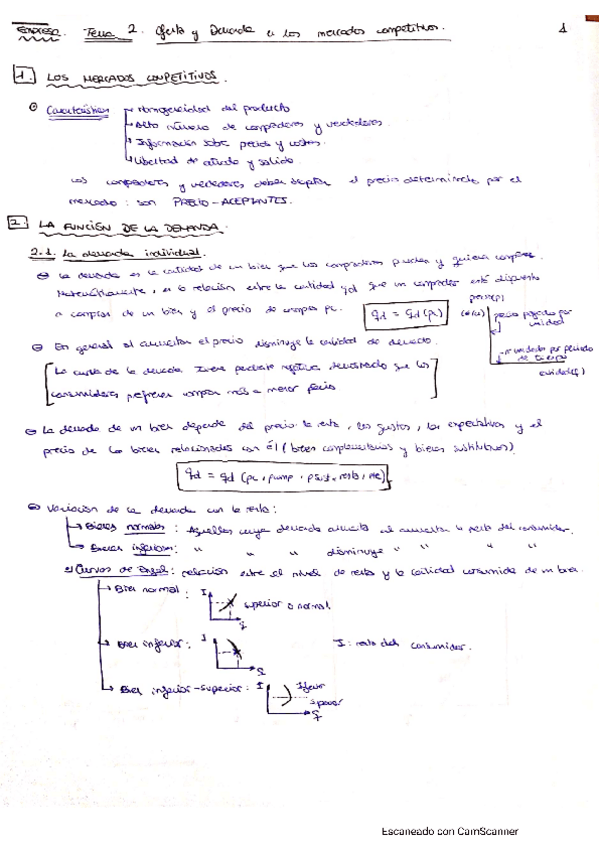 EMPRESA. Tema 2. Oferta y Demanda en los mercados competitivos. 1
1. LOS MERCADOS COMPETITIVOS.
Características → Homogeneidad del producto
→ Alto número de compradores y vendedores.
→ Información sobre precios y costes.
→ Libertad de entrada y salida.
Los compradores y vendedores deben aceptar el precio determinado por el
mercado: son PRECIO-ACEPTANTES.
2. LA FUNCIÓN DE LA DEMANDA.
2.1. La demanda individual.
La demanda es la cantidad de un bien que los compradores pueden y quieren comprar.
Matemáticamente, es la relación entre la cantidad qd que un comprador está dispuesto
a comprar de un bien y el precio de compra pc. qd = qd (pc)
precio pagado por
unidad
nº unidades por periodo
de tiempo
cantidad(q)
En general al aumentar el precio disminuye la cantidad de demanda.
La curva de la demanda tiene pendiente negativa demostrando que los
consumidores prefieren comprar más a menor precio
La demanda de un bien depende del precio la renta, los gustos, las expectativas y el
precio de los bienes relacionados con él (bienes complementarios y bienes sustitutivos)
qd = qd (pc, pcomp, psust, renta, etc)
Variación de la demanda con la renta:
→ Bienes normales: Aquellos cuya demanda aumenta al aumentar la renta del consumidor.
→ Bienes inferiores: " " " disminuye " " " "
Curvas de Engel: relación entre el nivel de renta y la cantidad consumida de un bien.
→ Bien normal: I q superior o normal.
→ Bien inferior: I q I: renta del consumidor.
→ Bien inferior-superior: I q Inferior
Superior
Escaneado con CamScanner